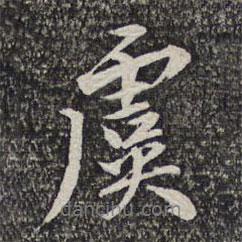 虞
dancinu.com